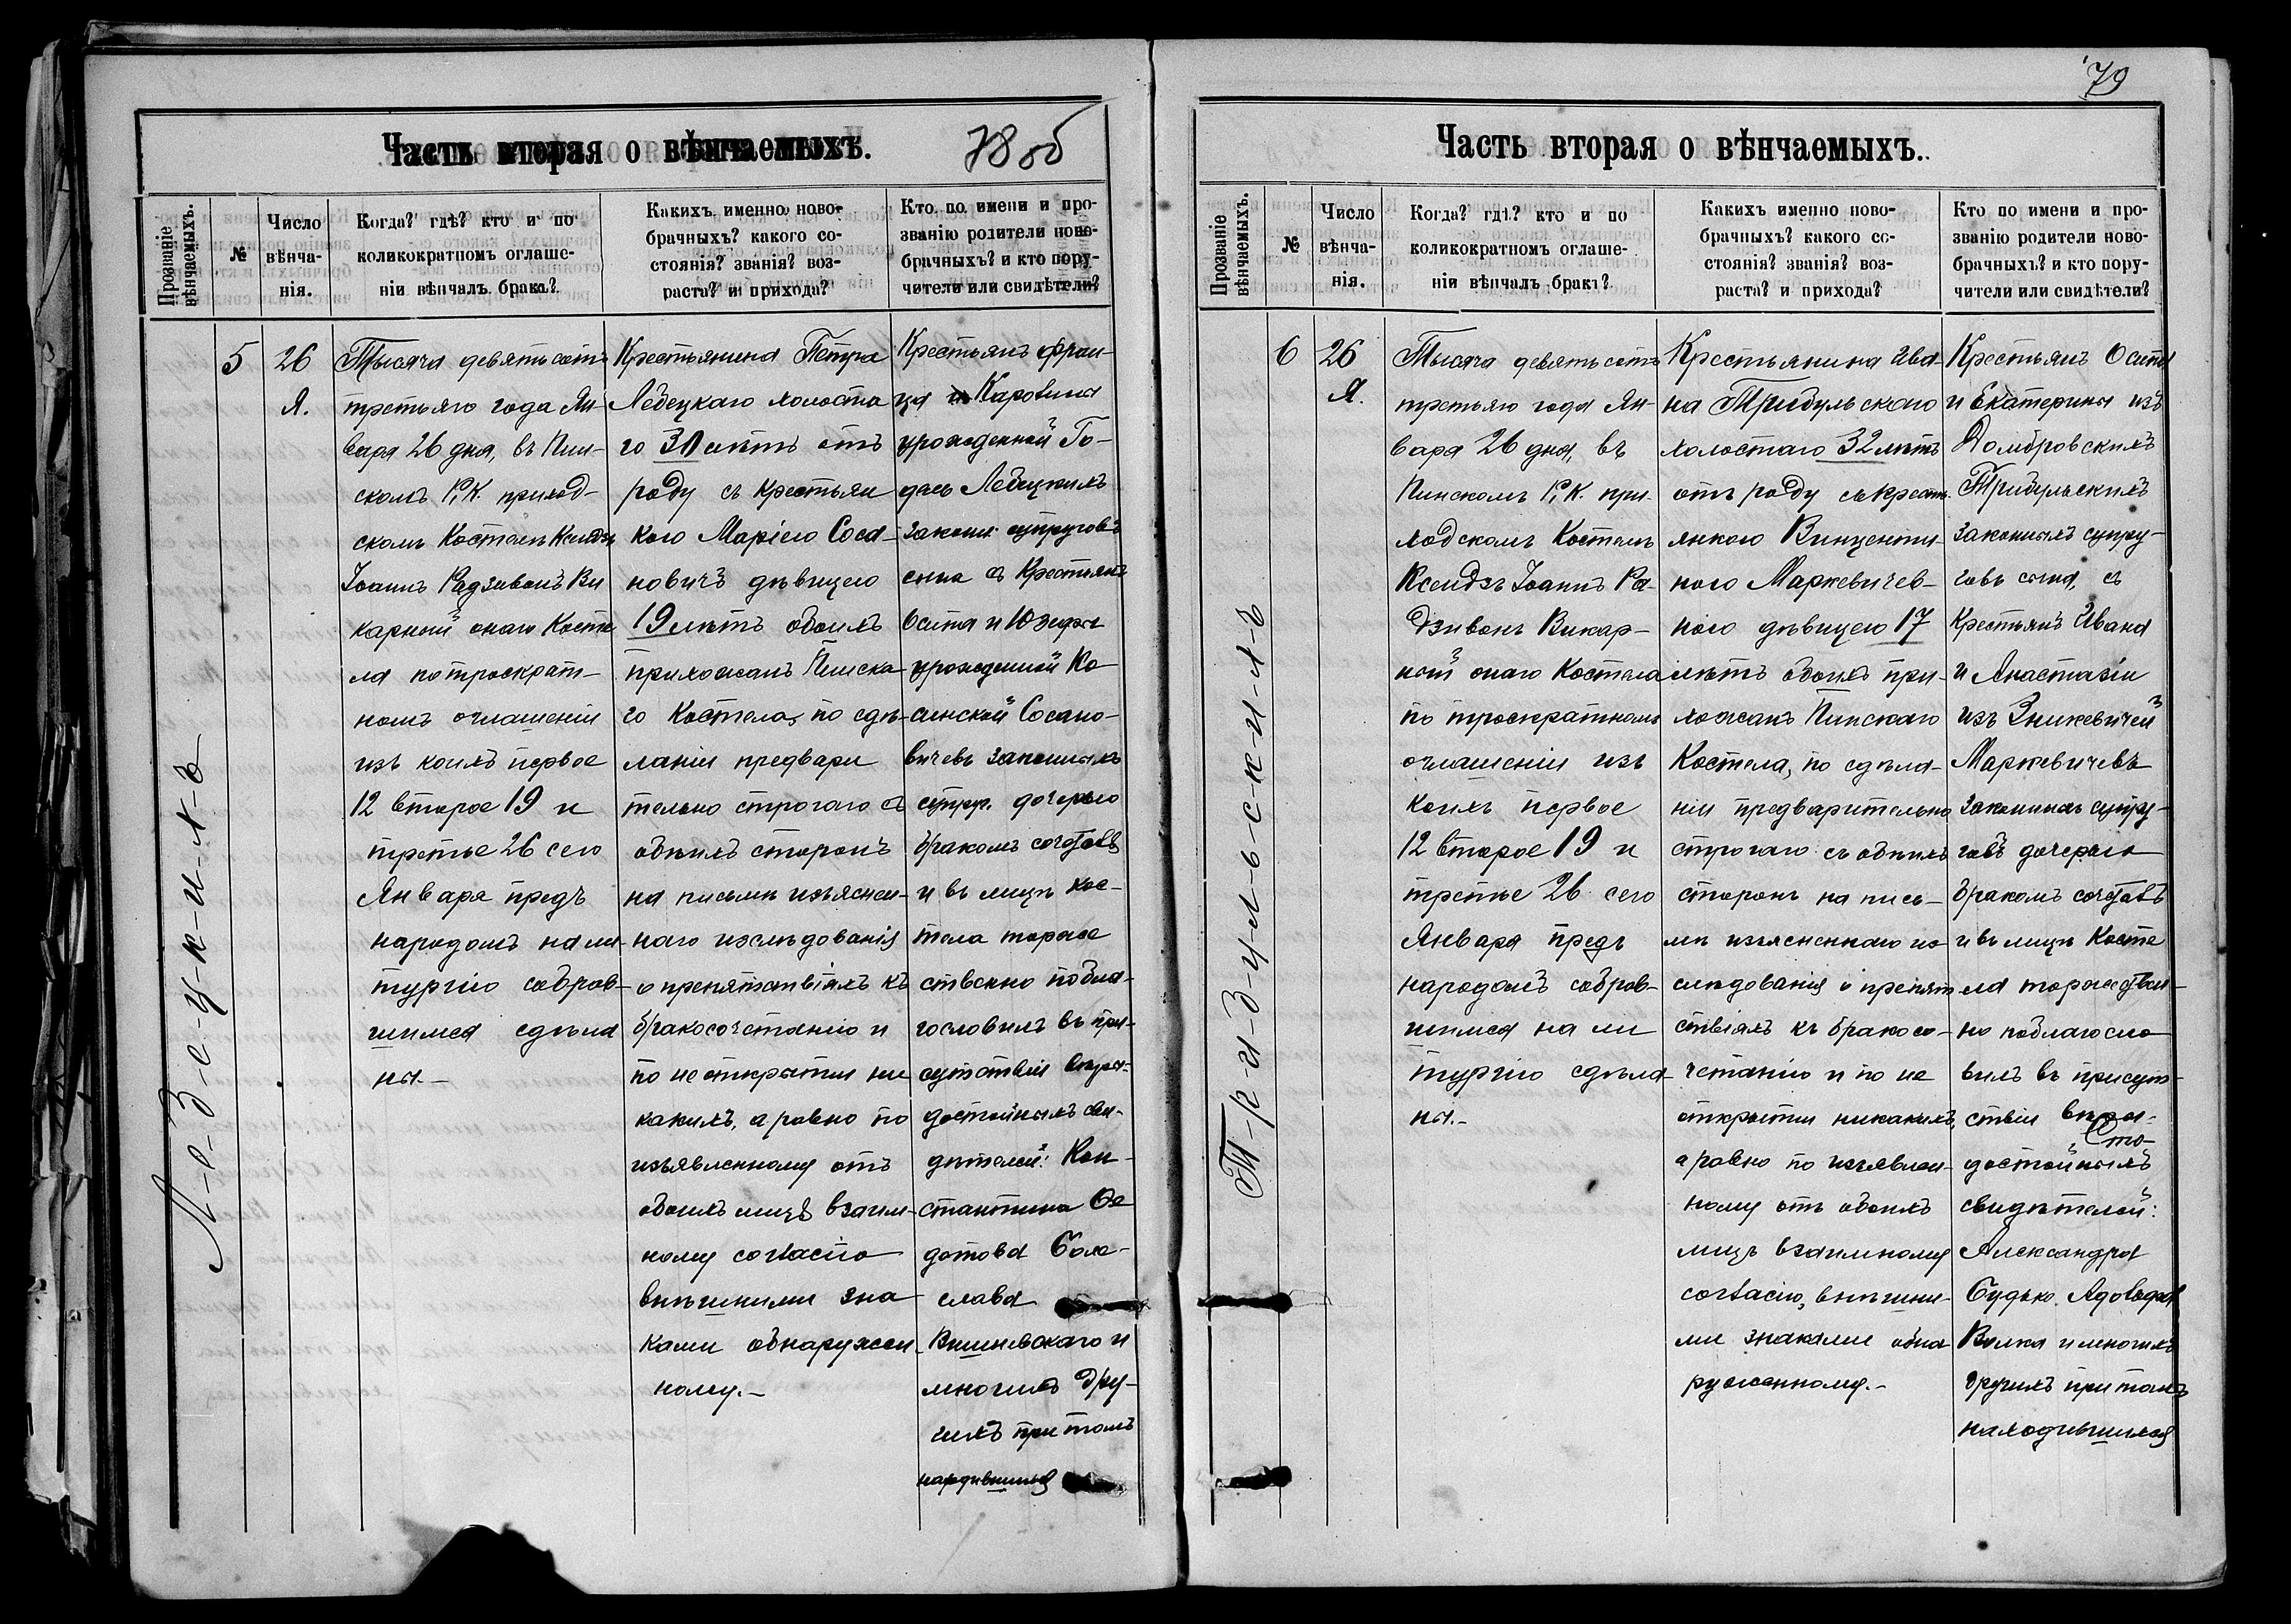 79
Часть вторая о вѣнчаемыхъ.
78 об
Прозваніе вѣнчаемыхъ.
№
Число вѣнча-
нія.
Когда? гдѣ? кто и по
коликократномъ оглаше-
ніи вѣнчалъ бракъ?
Какихъ именно ново-
брачныхъ? какого со-
стоянія? званія? воз-
раста? и прихода?
Кто по имени и про-
званію родители ново-
брачныхъ? и кто пору-
чители или свидѣтели?
Л-е-д-е-ц-к-и-х-ъ
5
26
Я.
Тысяча девятьсотъ
третьяго года Ян-
варя 26 дня, въ Пин-
скомъ Р. К. приход-
скомъ Костелѣ Ксендзъ
Іоаннъ Радзивонъ Ви
карный онаго Косте
ла по троекрат-
номъ оглашеніи
изъ коихъ первое
12 второе 19 и
третье 26 сего
Января предъ
народомъ на ли-
тургію собрав-
шимся сдѣла
ны.-
Крестьянина Петра
Ледецкаго холоста
го лѣтъ отъ
роду съ крестьян
кою Маріею Соса-
новичъ дѣвицею
19 лѣтъ обоихъ
прихожанъ Пинска-
го Костела, по сдѣ-
ланіи предвари
тельно строгаго съ
обѣихъ сторонъ
на письмѣ изъяснен-
наго изслѣдованія
о препятствіяхъ къ
бракосочетанію и
по не открытіи ни
какихъ, а равно по
изъявленному отъ
обоихъ лицъ взаим-
ному согласію
внѣшними зна
ками обнаружен-
ному.-
Крестьянъ Фран-
ца и Каролины
урожденной Го-
дась Ледецкихъ
законн. супруговъ
сына съ Крестьянъ
Осипа и Юзефы
урожденной Ко-
линской Сосано-
вичевъ законныхъ
супр. дочерью
бракомъ сочеталъ
и въ лицѣ Кос-
тела торже
ственно побла-
гословилъ въ при-
сутствіи вѣро-
достойныхъ сви-
дѣтелей: Кон-
стантина Фе
дотова Боле-
слава
Вишневскаго и
многихъ дру-
гихъ при томъ
находившихся
Часть вторая о вѣнчаемыхъ.
Прозваніе вѣнчаемыхъ.
№
Число
вѣнча-
нія.
Когда? гдѣ? кто и по
коликократномъ оглаше-
ніи вѣнчалъ бракъ?
Какихъ именно ново-
брачныхъ? какого со-
стоянія? званія? воз-
раста? и прихода?
Кто по имени и про-
званію родители ново-
брачныхъ? и кто пору-
чители или свидѣтели?
Т-р-и-б-у-л-ь-с-к-и-х-ъ
6
26
Я.
Тысяча девятьсотъ
третьяго года Ян-
варя 26 дня, въ
Пинскомъ Р. К. при-
ходскомъ Костелѣ
Ксендзъ Іоаннъ Ра-
дзивонъ Викар-
ный онаго Костела
по троекратномъ
оглашеніи изъ
коихъ первое
12 второе 19 и
третье 26 сего
Января предъ
народомъ собрав-
шимся на ли
тургію сдѣла-
ны.-
Крестьянина Ива-
на Трибульскаго
холостаго 32 лѣтъ
отъ роду съ крестъ-
янкою Винценти-
ною Маркевичев-
ною дѣвицею 17
лѣтъ обоихъ при-
хожанъ Пинскаго
Костела, по сдѣла-
ніи предварительно
строгаго съ обѣихъ
сторонъ на пись-
мѣ изъясненнаго из-
слѣдованія о препят-
ствіяхъ къ бракосо-
четанію и по не
открытіи никакихъ,
а равно по изъявлен-
ному отъ обоихъ
лицъ взаимному
согласію, внѣшни-
ми знаками обна
руженному.-
Крестьянъ Осипа
и Екатерины изъ
Домбровскихъ
Трибульскихъ
законныхъ супру-
говъ сына, съ
Крестьянъ Ивана
и Анастазіи
изъ Зинкевичей
Маркевичевъ
законныхъ супру-
говъ дочерью
бракомъ сочеталъ
и въ лицѣ Косте
ла торжествен-
но поблагосло
вилъ въ присут-
ствіи вѣро-
достойныхъ
свидѣтелей:
Александра
Будько, Адольфа
Волка и многихъ
другихъ при томъ
находившихся